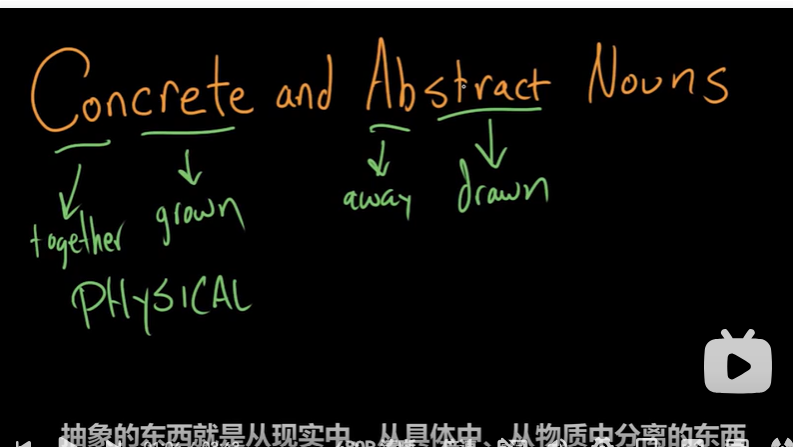 Concrete and Abstract Nouns
together grown away drawn
PHYSICAL
抽象的东西就是从现实中、从具体中、从物质中分离的东西